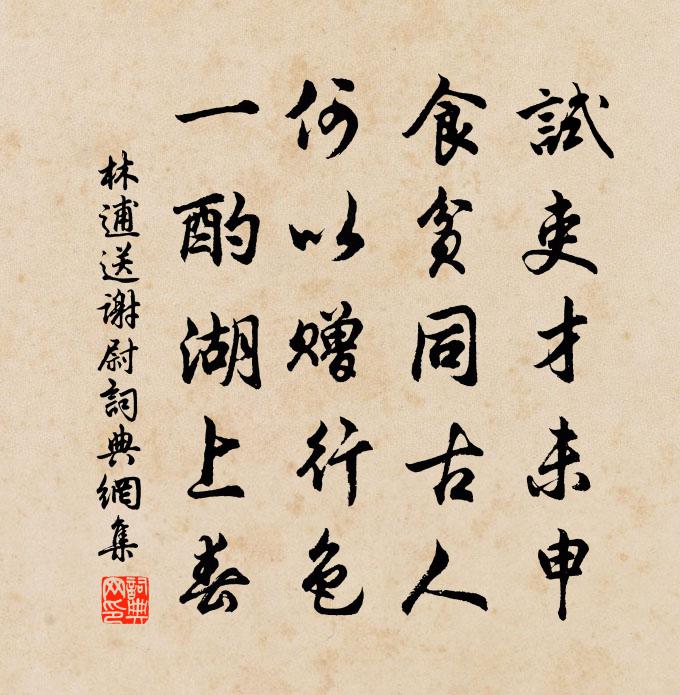 試吏才未申
食貧同古人
何以赠行色
一酌湖上春
林逋送謝尉詞典網集
詞典網印